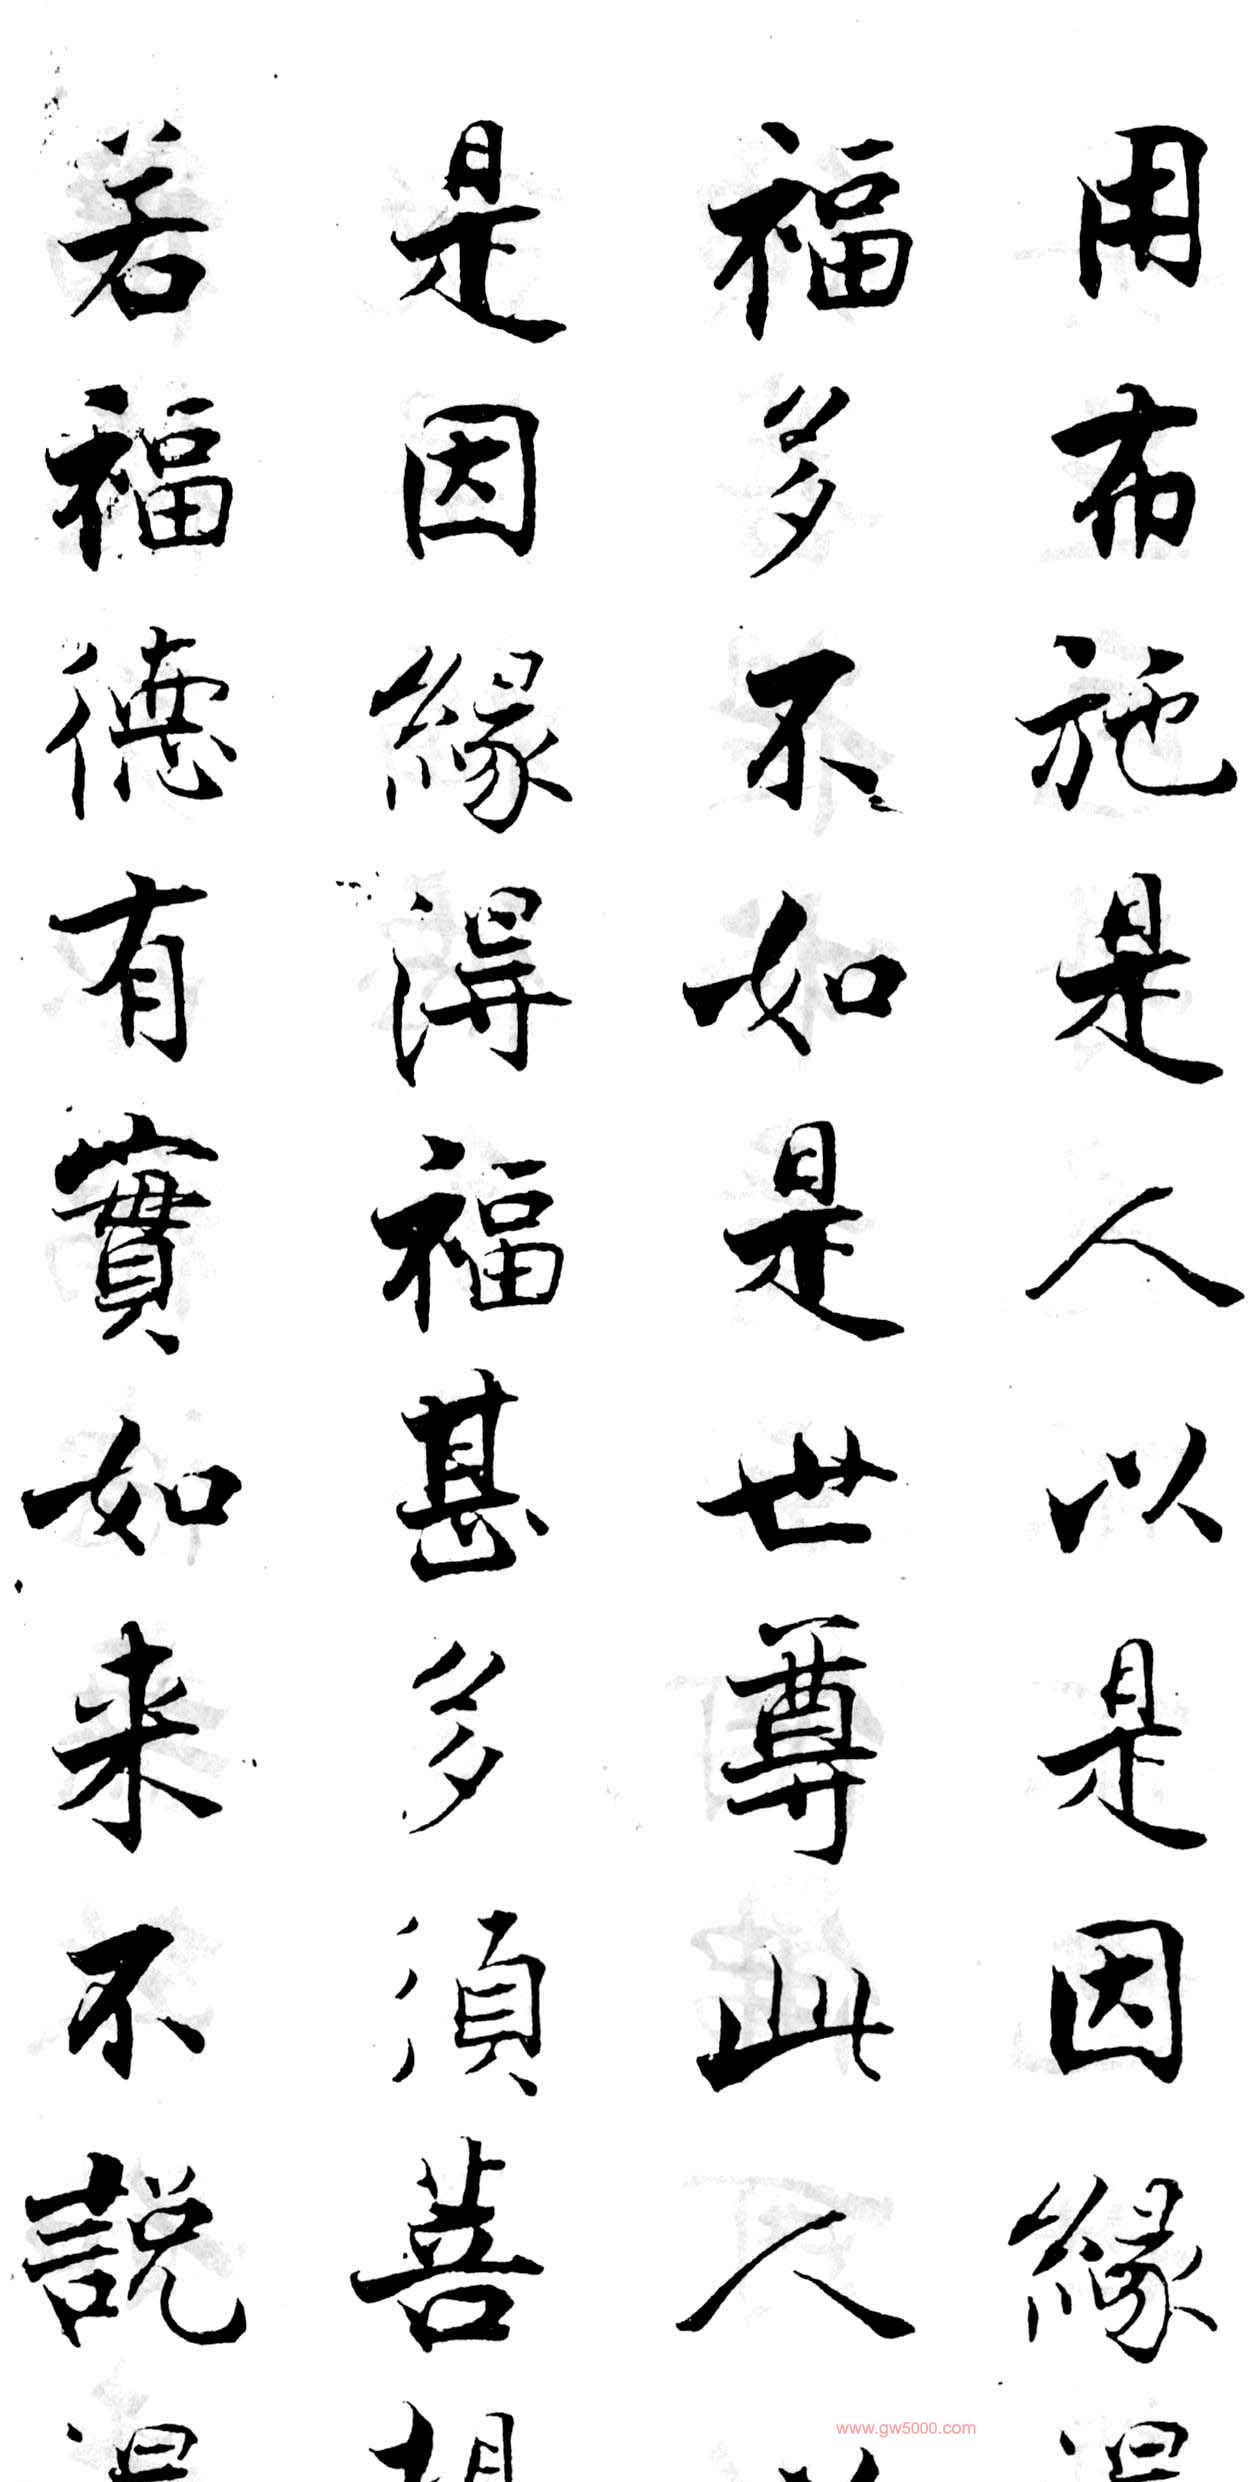 用布施是人以是因緣
福多不如是世尊此人
是因緣得福甚多須菩
若福德有實如来不説
www.gw5000.com